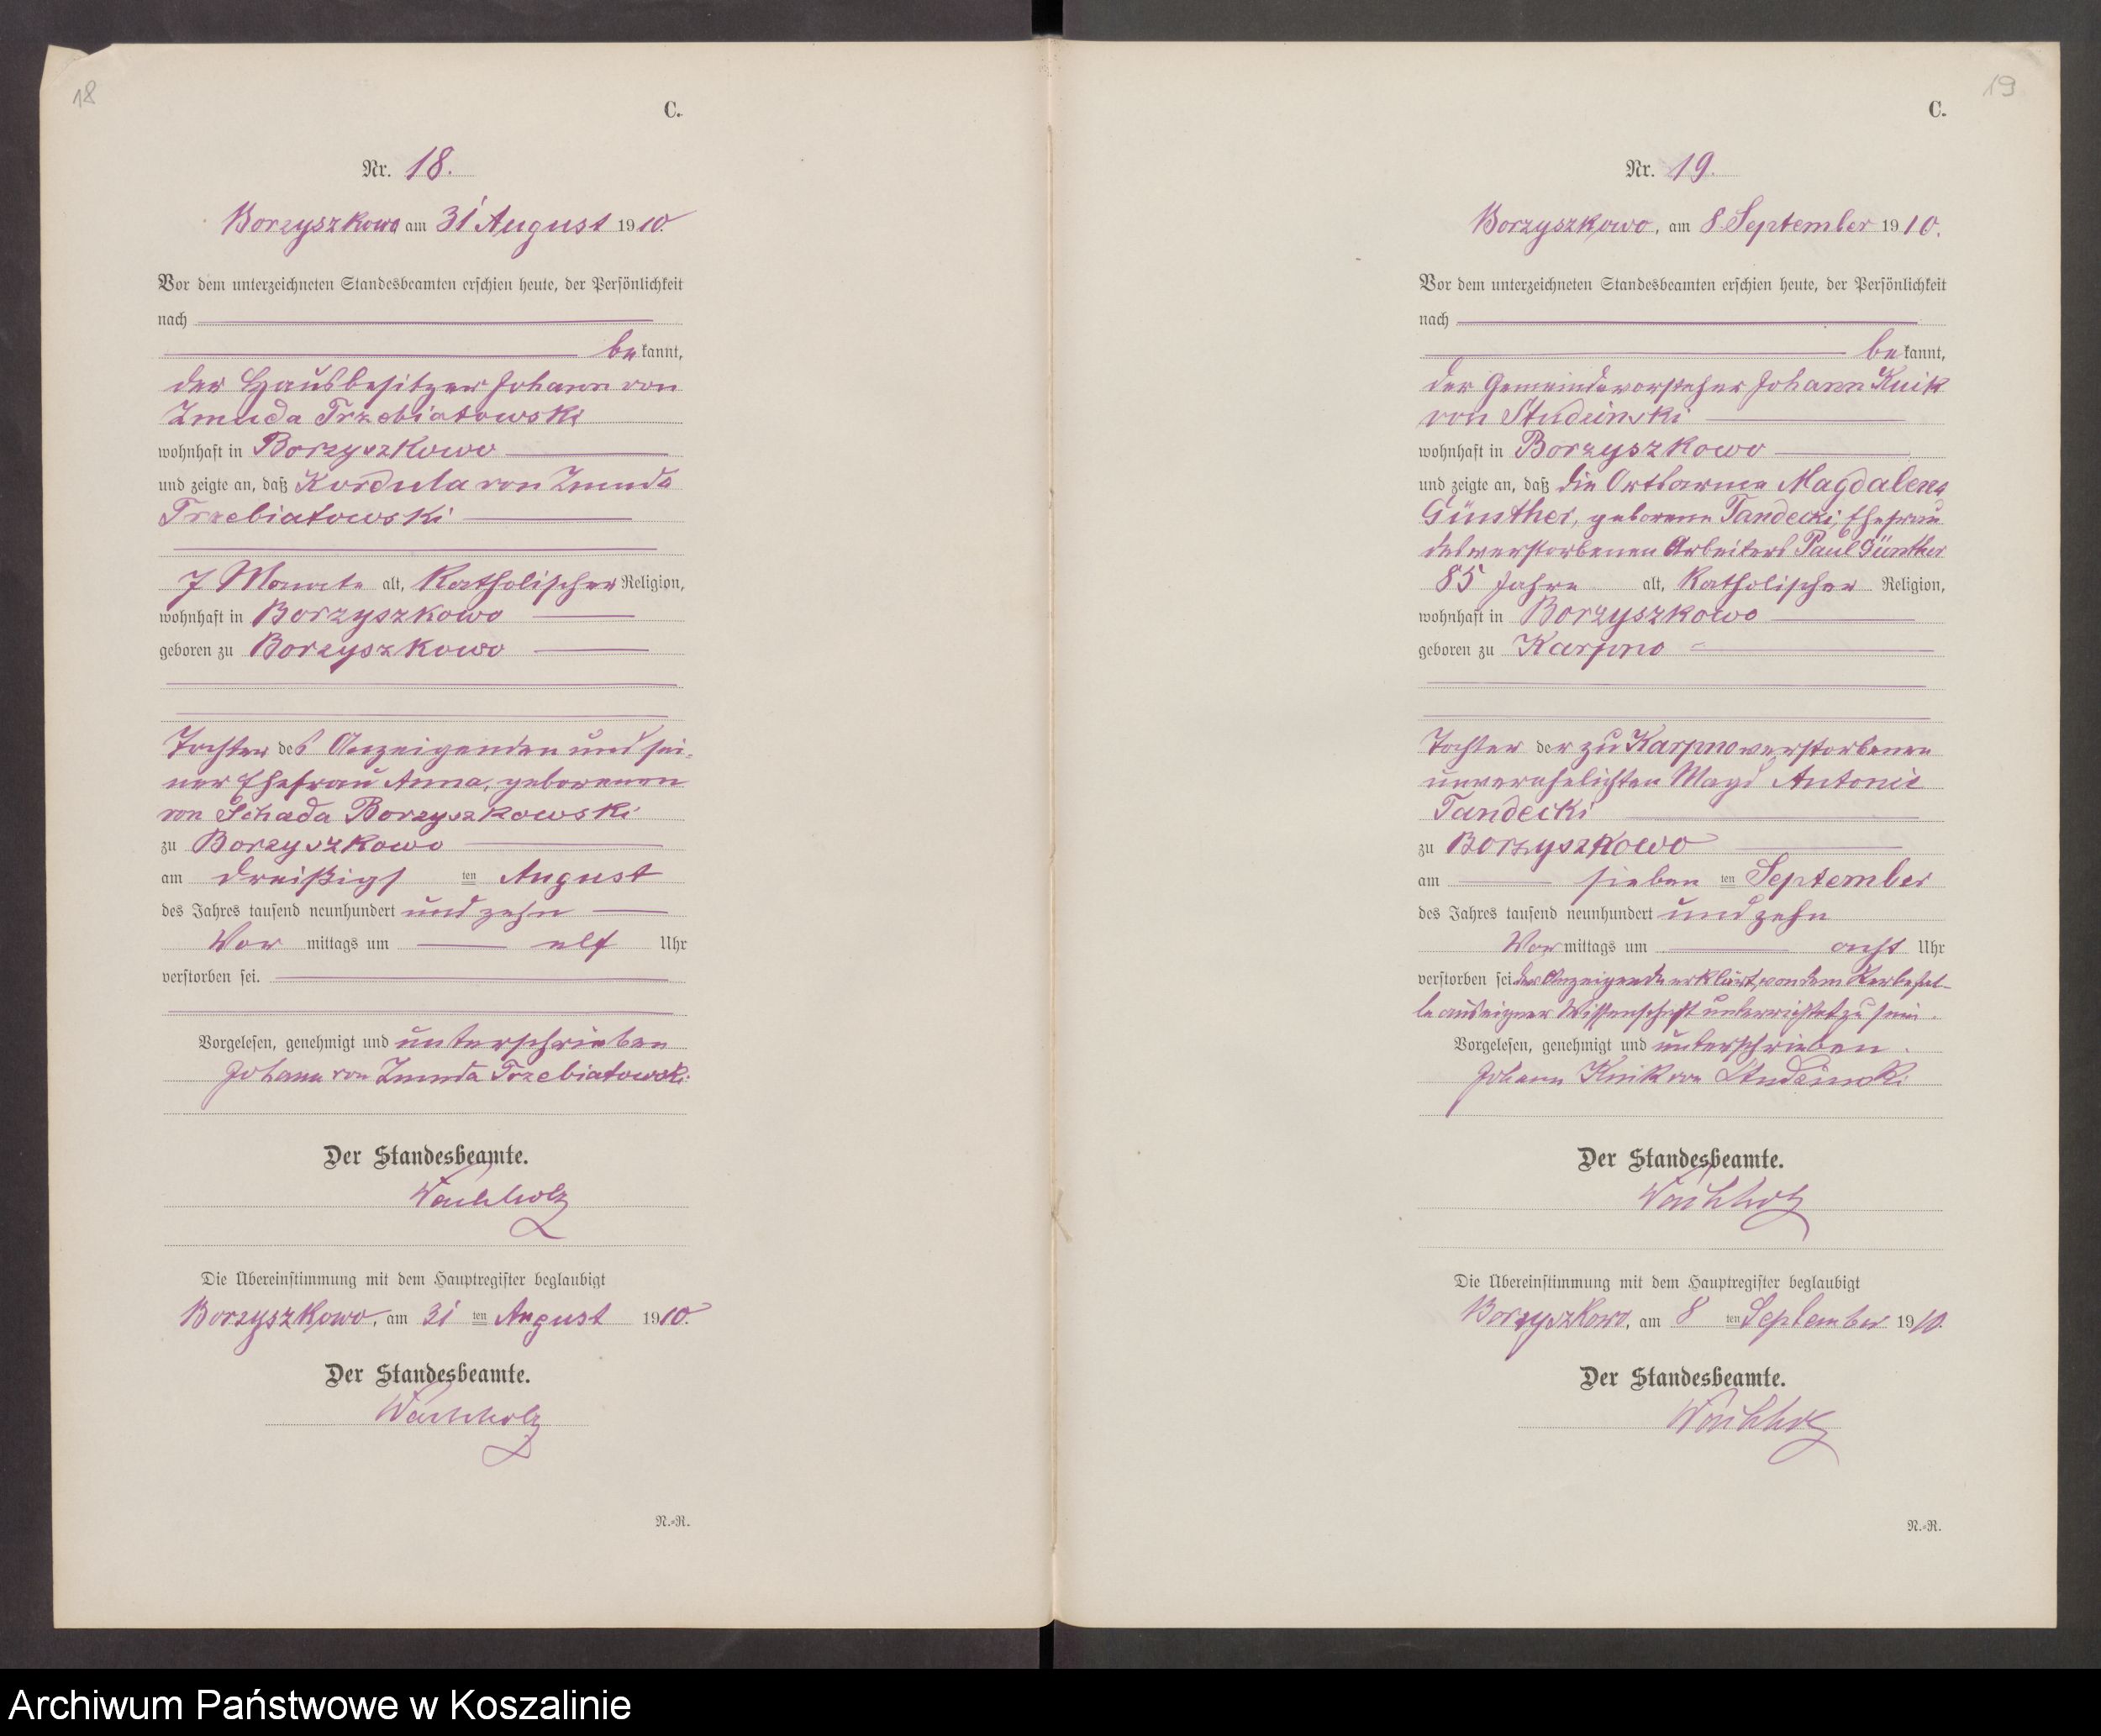 18
C.
Nr. 18.
Borzyszkowo am 31 August 1910.
Vor dem unterzeichneten Standesbeamten erschien heute, der Persönlichkeit
nach
bekannt,
der Hausbesitzer Johann von
Zmuda Trzebiatowski
wohnhaft in Borzyszkowo
und zeigte an, daß Kordula von Zmuda
Trzebiatowski
7 Monate alt, katholischer Religion,
wohnhaft in Borzyszkowo
geboren zu Borzyszkowo
Tochter des Anzeigenden und sei-
ner Ehefrau Anna, geborenen
von Schada Borzyszkowski
zu Borzyszkowo
am dreißigsten August
des Jahres tausend neunhundert und zehn
Vor mittags um elf Uhr
verstorben sei.
Vorgelesen, genehmigt und unterschrieben
Johann von Zmuda Trzebiatowski
Der Standesbeamte.
Wachholz
Die Übereinstimmung mit dem Hauptregister beglaubigt
Borzyszkowo, am 31 ten August 1910.
Der Standesbeamte.
Wachholz
N.-R.
19
C.
Nr. 19.
Borzyszkowo, am 8. September 1910.
Vor dem unterzeichneten Standesbeamten erschien heute, der Persönlichkeit
nach
bekannt,
der Gemeindevorsteher Johann Knik
von Studzinski
wohnhaft in Borzyszkowo
und zeigte an, daß die Ortsarme Magdalena
Günther, geborene Tandecki, Ehefrau
des verstorbenen Arbeiters Paul Günther
85 Jahre alt, katholischer Religion,
wohnhaft in Borzyszkowo
geboren zu Karpno
Tochter der zu Karpno verstorbenen
unverehelichten Magd Antonie
Tandecki
zu Borzyszkowo
am sieben ten September
des Jahres tausend neunhundert und zehn
Vor mittags um acht Uhr
verstorben sei. der Anzeigende erklärt, von dem Sterbefal-
le aus eigner Wissenschaft unterrichtet zu sein.
Vorgelesen, genehmigt und unterschrieben.
Johann Knik von Studzinski
Der Standesbeamte.
Wachholz
Die Übereinstimmung mit dem Hauptregister beglaubigt
Borzyszkowo, am 8 ten September 1910.
Der Standesbeamte.
Wachholz
N.-R.
Archiwum Państwowe w Koszalinie